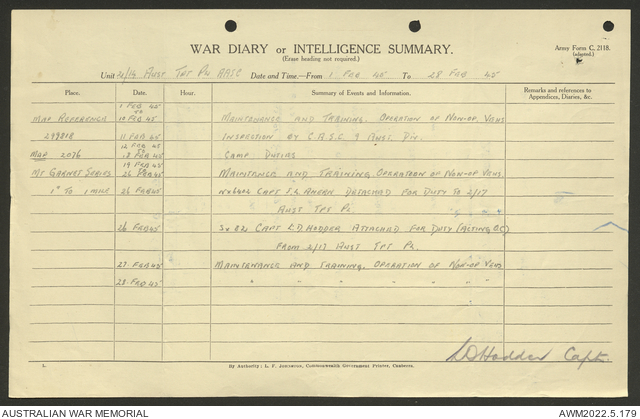 WAR DIARY or INTELLIGENCE SUMMARY.
(Erase heading not required.)
Army Form C. 2118.
(adapted.)
Unit Aust Tpt Pl AASC Date and Time.—From 1 FEB 45 To 28 FEB 45
Place. Date. Hour. Summary of Events and Information. Remarks and references to Appendices, Diaries, &c.
1 FEB 45
to
MAP REFERENCE 10 FEB 45 MAINTENANCE AND TRAINING. OPERATION OF NON-OP. VEHS
11 FEB 45 INSPECTION BY C.A.S.C. 9 AUST. DIV.
12 FEB 45
to
MAP 2076 18 FEB 45 CAMP DUTIES
19 FEB 45
MT GARNET SERIES 26 FEB 45 MAINTENANCE AND TRAINING. OPERATION OF NON-OP VEHS
1" TO 1 MILE 26 FEB 45 CAPT J.L. AHERN DETACHED FOR DUTY TO 2/17
AUST TPT PL.
26 FEB 45 CAPT L D HODDER ATTACHED FOR DUTY (ACTING OC)
FROM 2/17 AUST TPT PL.
27 FEB 45 MAINTENANCE AND TRAINING. OPERATION OF NON-OP VEHS
28 FEB 45 " " " " "
LD Hodder Capt.
1.
By Authority: L. F. Johnston, Commonwealth Government Printer, Canberra.
AUSTRALIAN WAR MEMORIAL
AWM2022.5.179